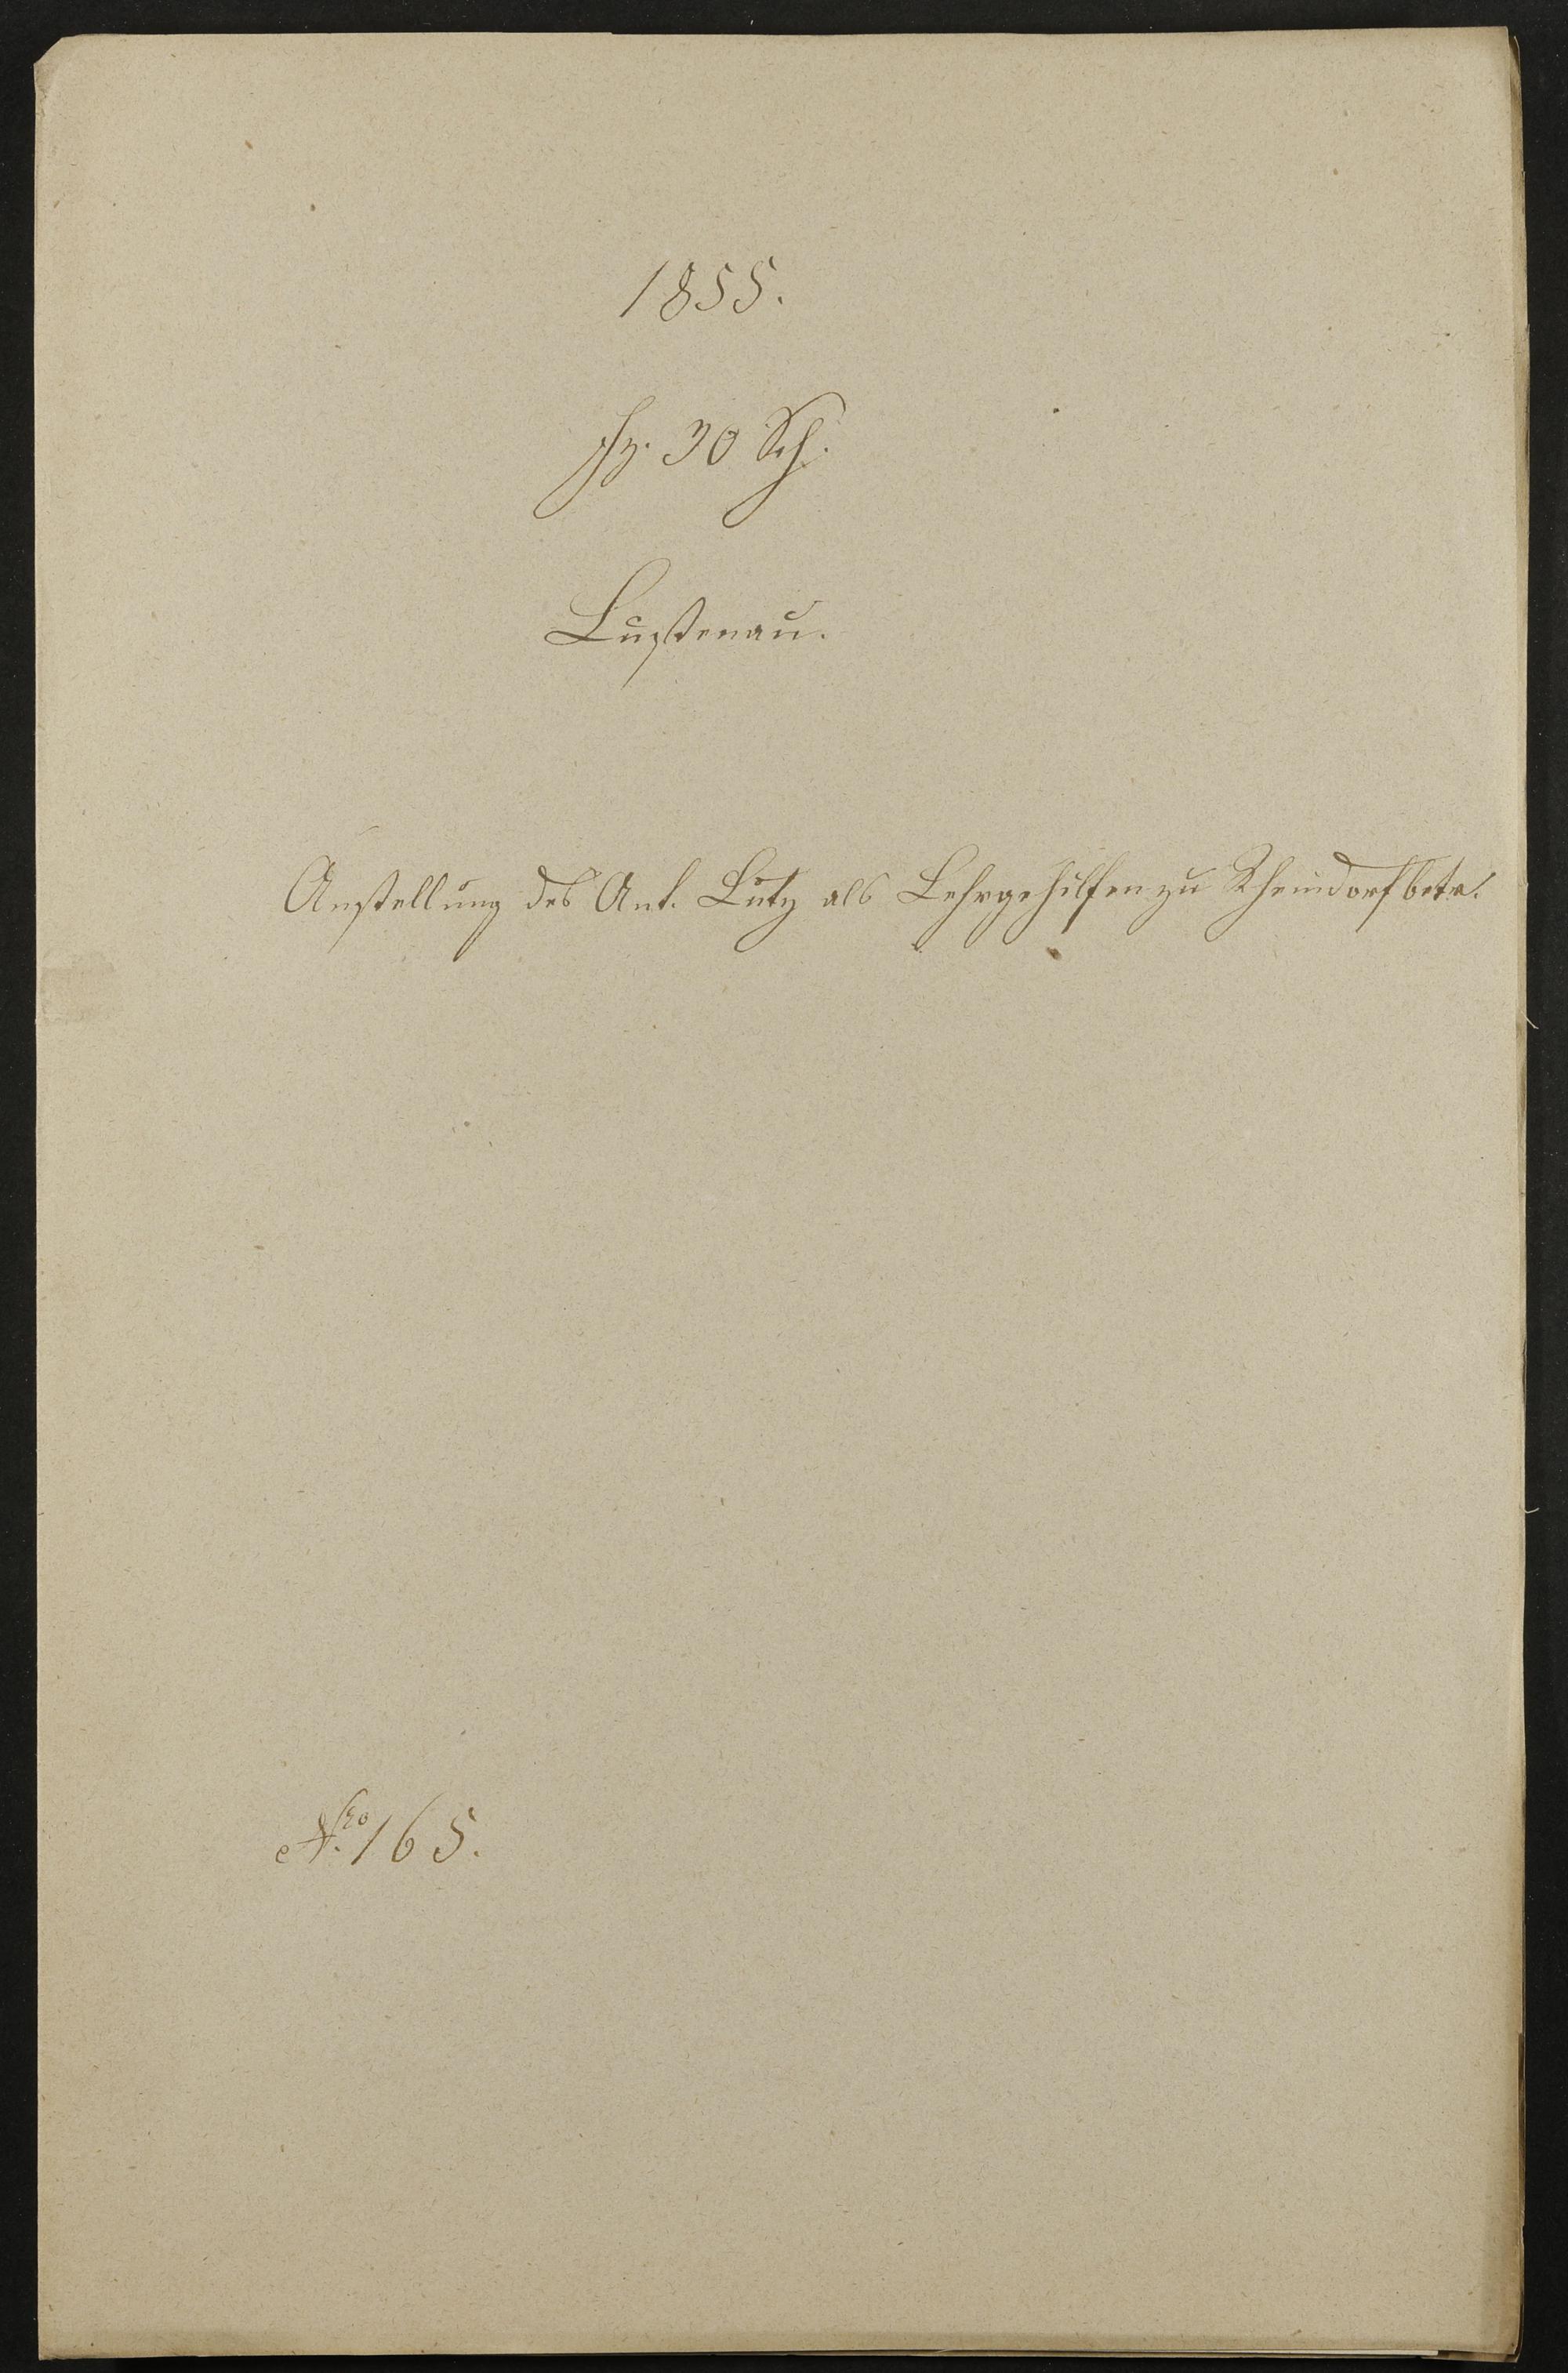 1855.
fz. 30 Sch.
Lustenau.
Anstellung des Ant. Lutz als Lehrgehilfen zu Rheindorf betr.
Nro. 165.